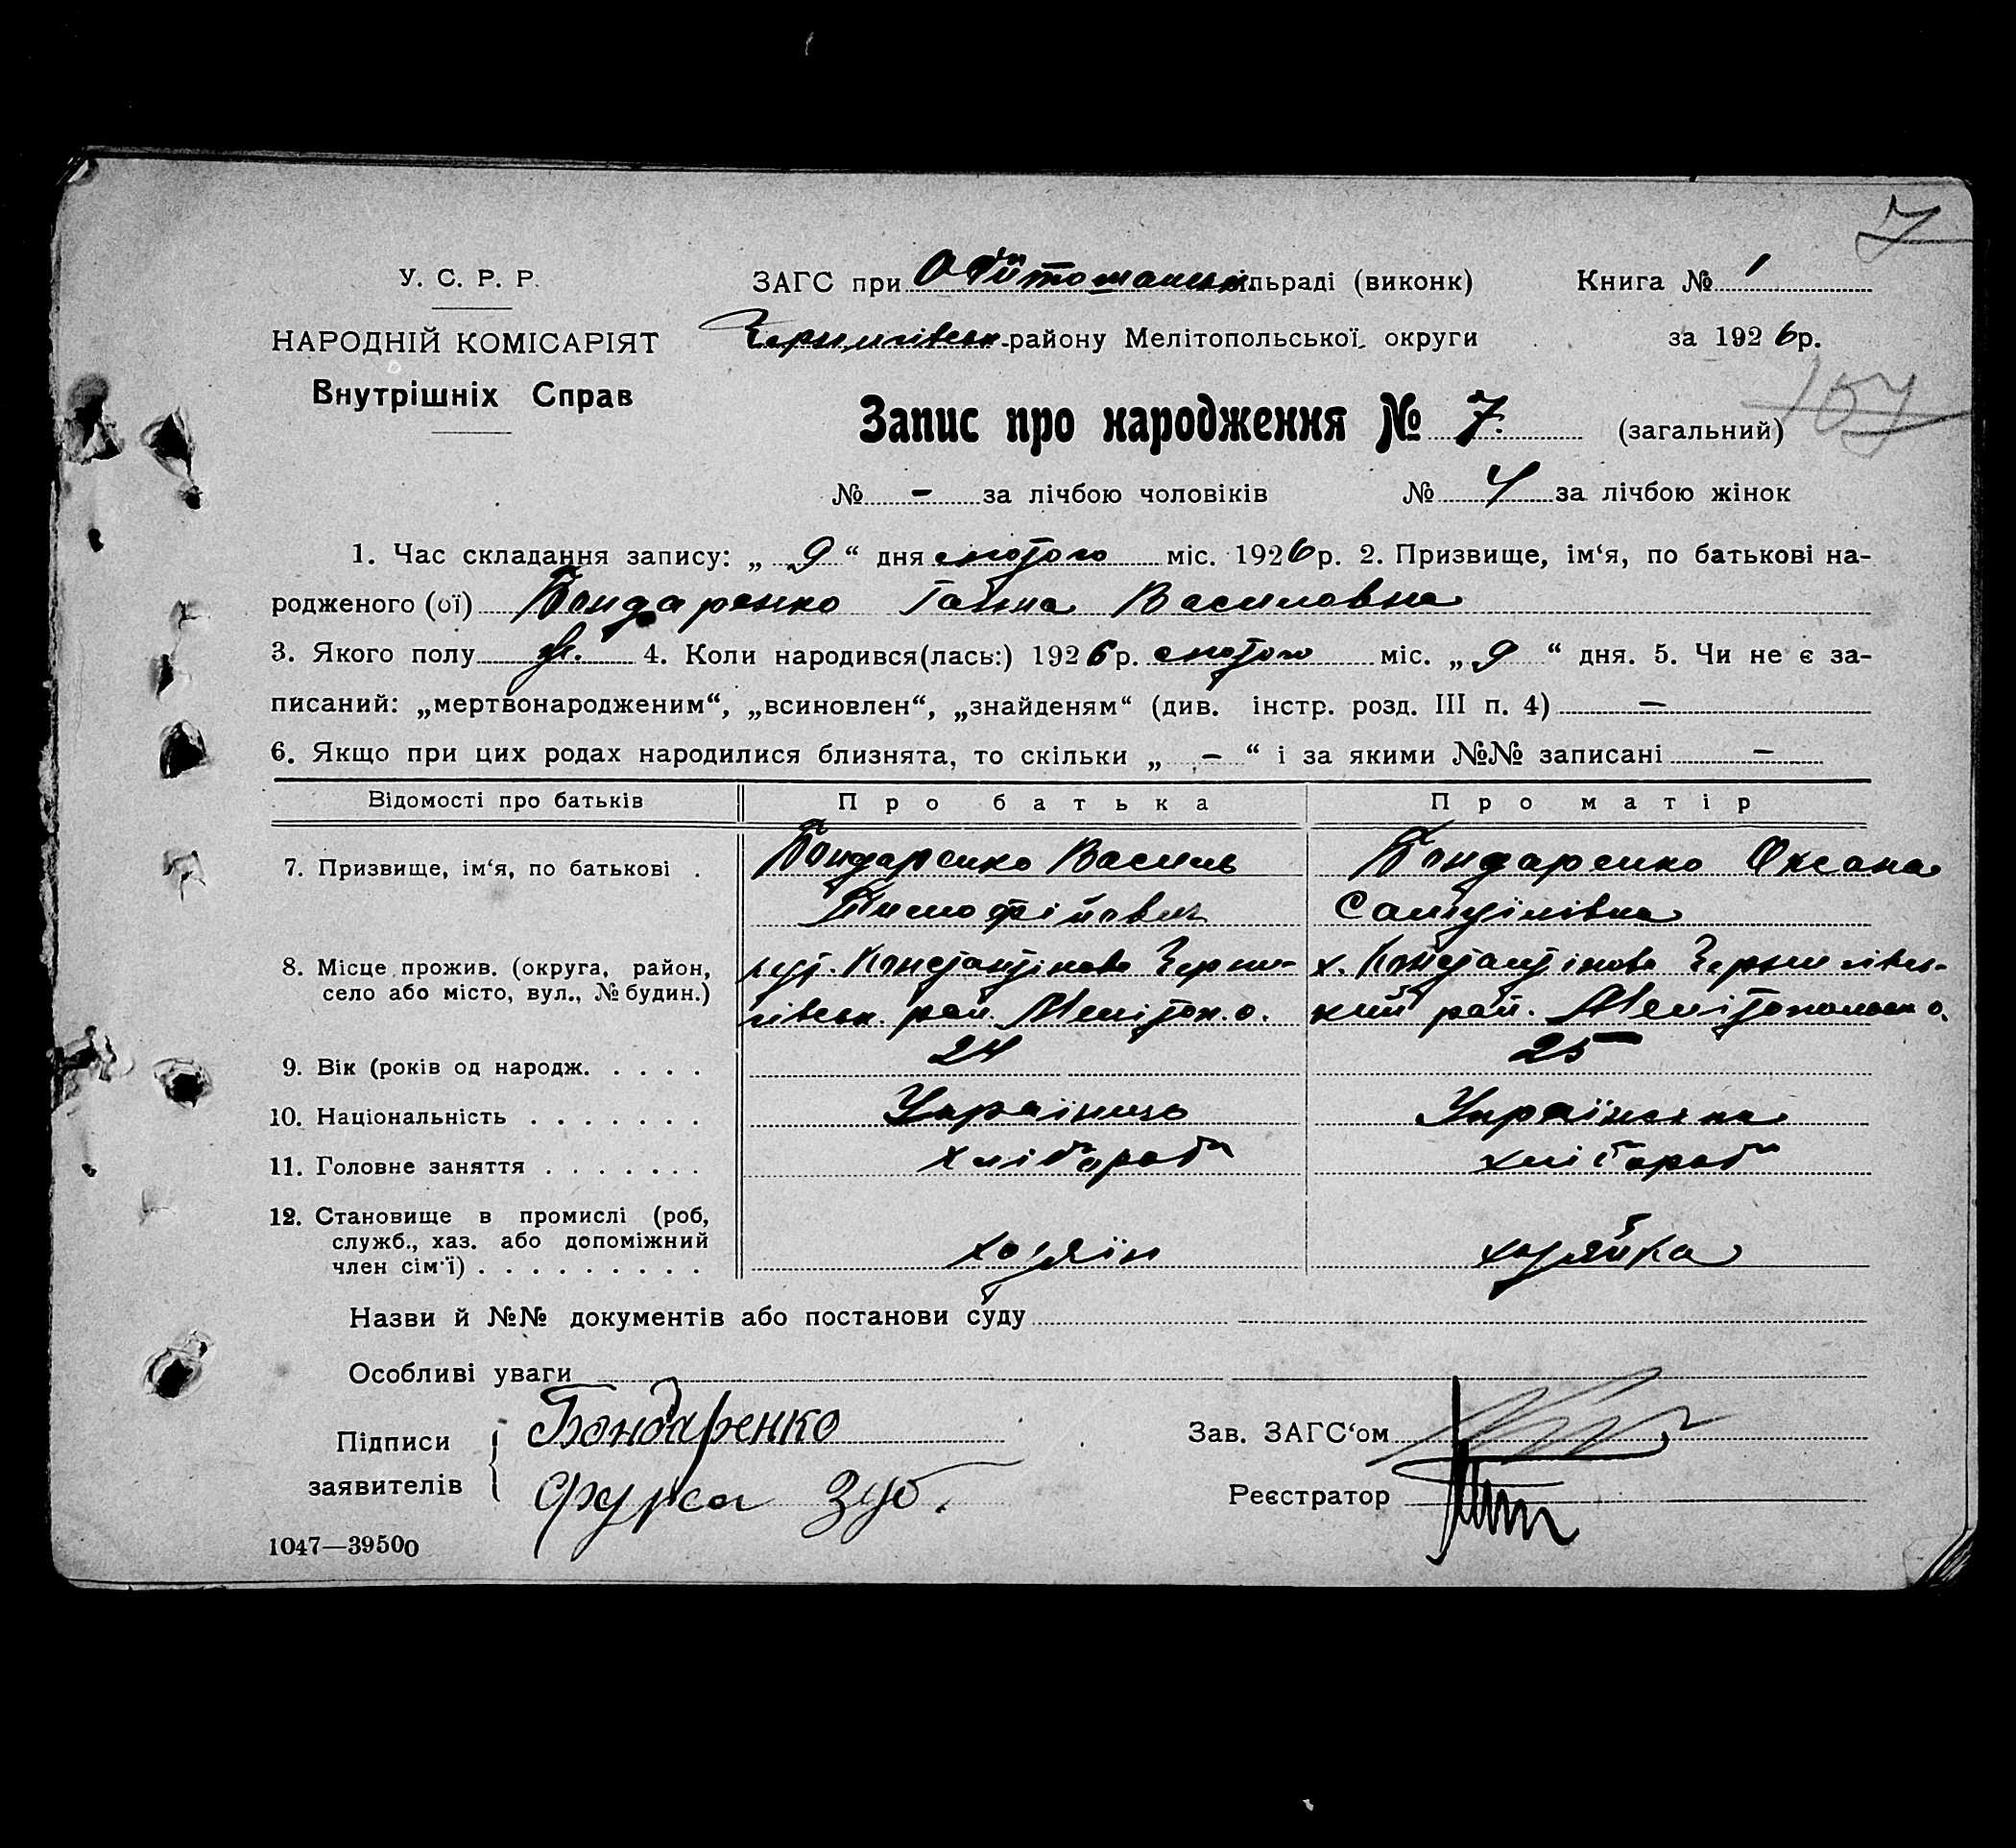 7
У. С. Р. Р.
ЗАГС при сільраді (виконк)
Книга № 1
НАРОДНІЙ КОМІСАРІЯТ
Чернигівськ. району Мелітопольської округи
за 1926р.
Внутрішніх Справ
Запис про народження № 7. (загальний)
№ - за лічбою чоловіків № 4 за лічбою жінок
1. Час складання запису: „ 9 “ дня лютого міс. 1926р. 2. Призвище, ім‘я, по батькові на-
родженого (ої) Бондаренко Ганна Василовна
3. Якого полу ж. 4. Коли народився(лась:) 1926р. лютого міс. „ 9 “ дня. 5. Чи не є за-
писаний: „мертвонародженим“, „всиновлен“, „знайденям“ (див. інстр. розд. III п. 4) —
6. Якщо при цих родах народилися близнята, то скільки „ - “ і за якими №№ записані —
Відомості про батьків Про батька Про матір
7. Призвище, ім‘я, по батькові . Бондаренко Василь Бондаренко Оксана
Тимофійович Самуілівна
8. Місце прожив. (округа, район, хут. Константіновка Черни- х. Константіновка Чернигівсь-
село або місто, вул., № будин.) гівськ. рай. Мелітоп. о. кий рай. Мелітопольськ о.
9. Вік (років од народж. . . . . 24 25
10. Національність . . . . . . . Українець Українка
11. Головне заняття . . . . . . . хлібароб хлібароб
12. Становище в промислі (роб,
служб., хаз. або допоміжний хозяїн хозяйка
член сім‘ї) . . . . . . . . .
Назви й №№ документів або постанови суду
Особливі уваги
Підписи Бондаренко Зав. ЗАГС‘ом
заявителів Фурса Зуб. Реєстратор
1047—39500